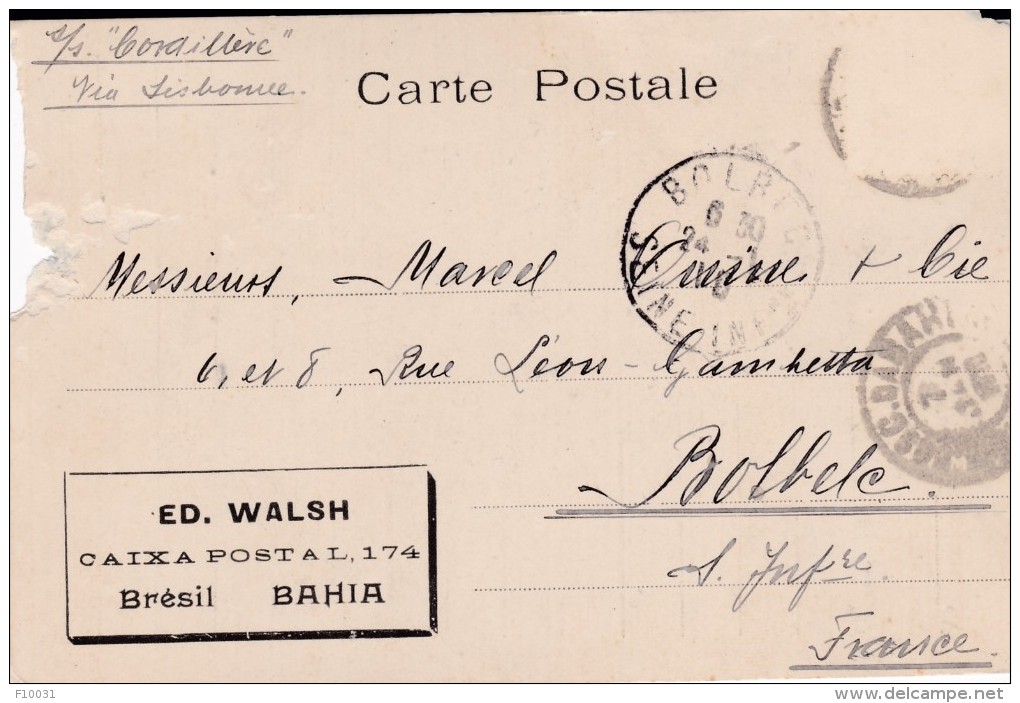 s/s. "Cordillère"
Via Lisbonne.
Carte Postale
BOLBEC
6 30
24
SEINE INF
Messieurs, Marcel & Cie
6, et 8, Rue Léon Gambetta
Bolbec.
S. Infre.
France.
ED. WALSH
CAIXA POSTAL, 174
Brésil BAHIA
F10031
delcampe.net